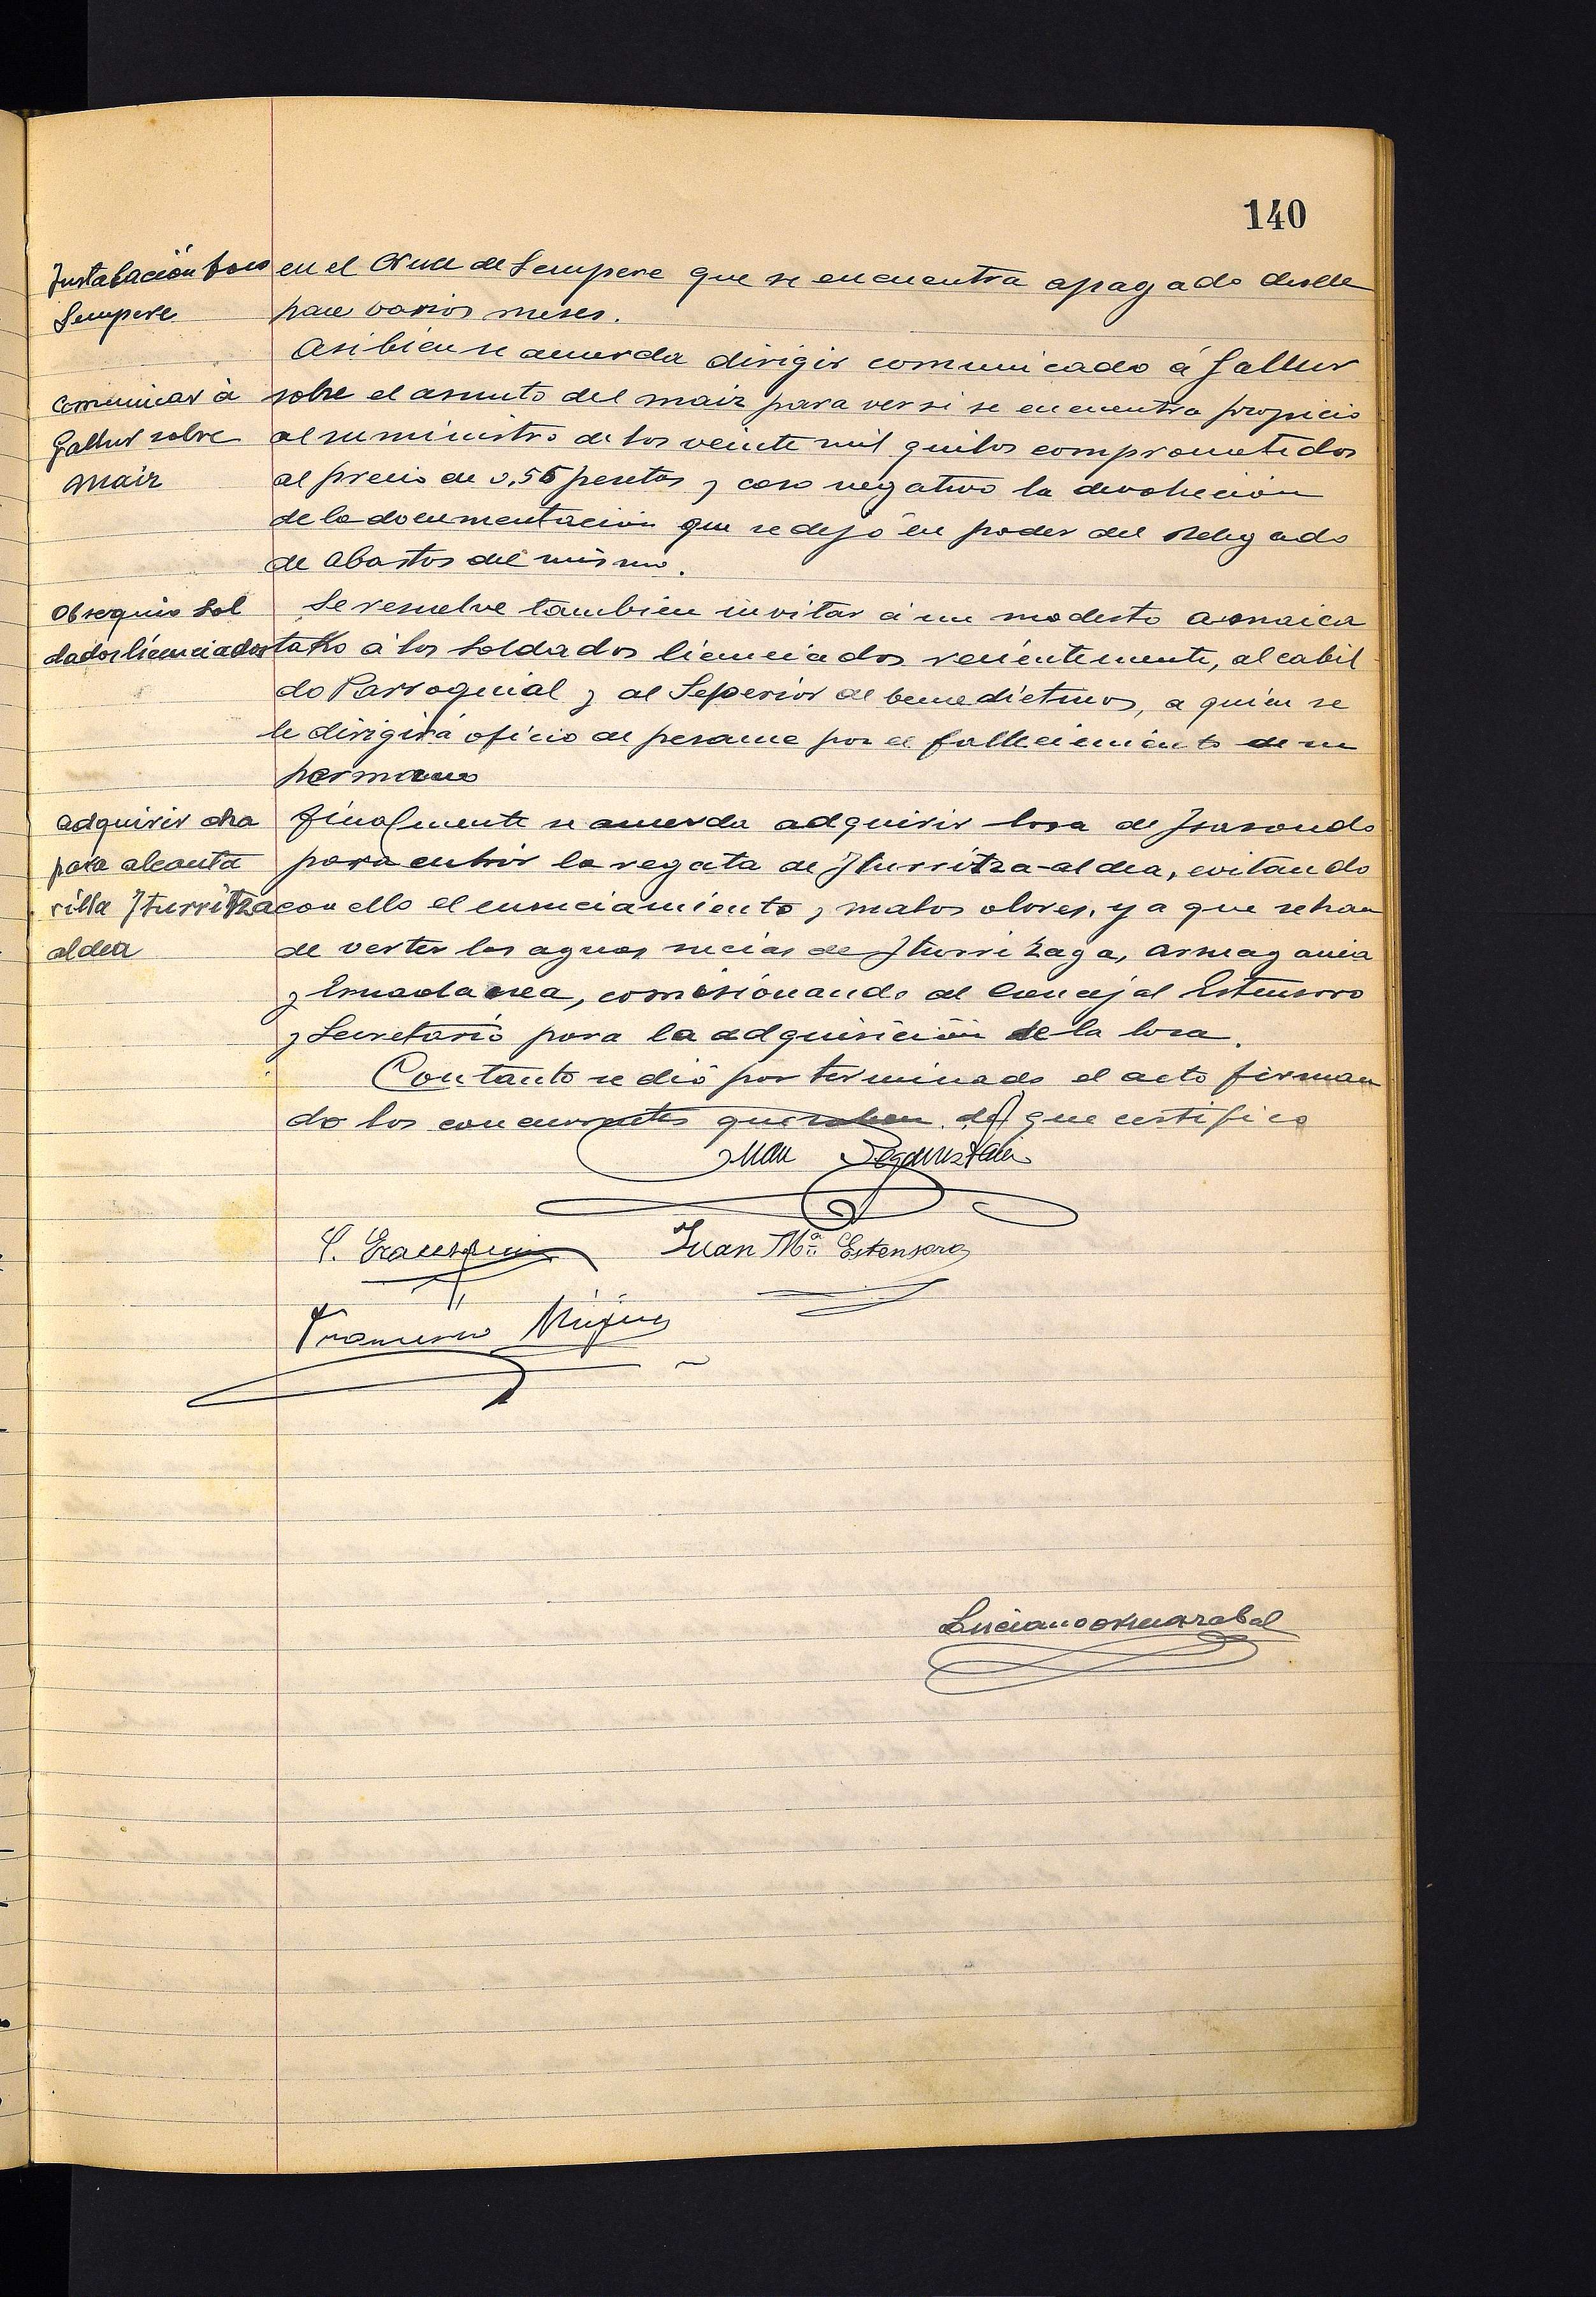 140
Instalación foco
Sempere
en el Cruce de Sempere que se encuentra apagado desde
hace varios meses.
Asi bien se acuerda dirigir comunicado á Gallur
Comunicar á
Gallur sobre
maiz
sobre el asunto del maiz para ver si se encuentra propicio
al suministro de los veinte mil quilos comprometidos
al precio de 0,56 pesetas y caso negativo la devolución
de la documentación que se dejó en poder del Delegado
de Abastos del mismo.
Obsequio Sol
dados licenciados
Se resuelve tambien invitar á un modesto amaica
tako á los Soldados licenciados recientemente, al cabil
do Parroquial y al Seperior de benedictinos, a quien se
le dirigirá oficio de pesame por el fallecimiento de su
hermano
Adquirir
para alcanta
rilla Iturritza
aldea
finalmente se acuerda adquirir losa de Isasondo
para cubrir la regata de Iturritza-aldea, evitando
con ello el ensuciamiento y malos olores, ya que se han
de verter las aguas sucias de Iturrizaga,
y comisionando al Concejal Estensoro
y Secretario para la adquisición de la losa.
Con tanto se dió por terminado el acto firman
do los concurrentes que saben, de que certifico
Juan
Juan Mª Estensoro
Francisco
Luciano